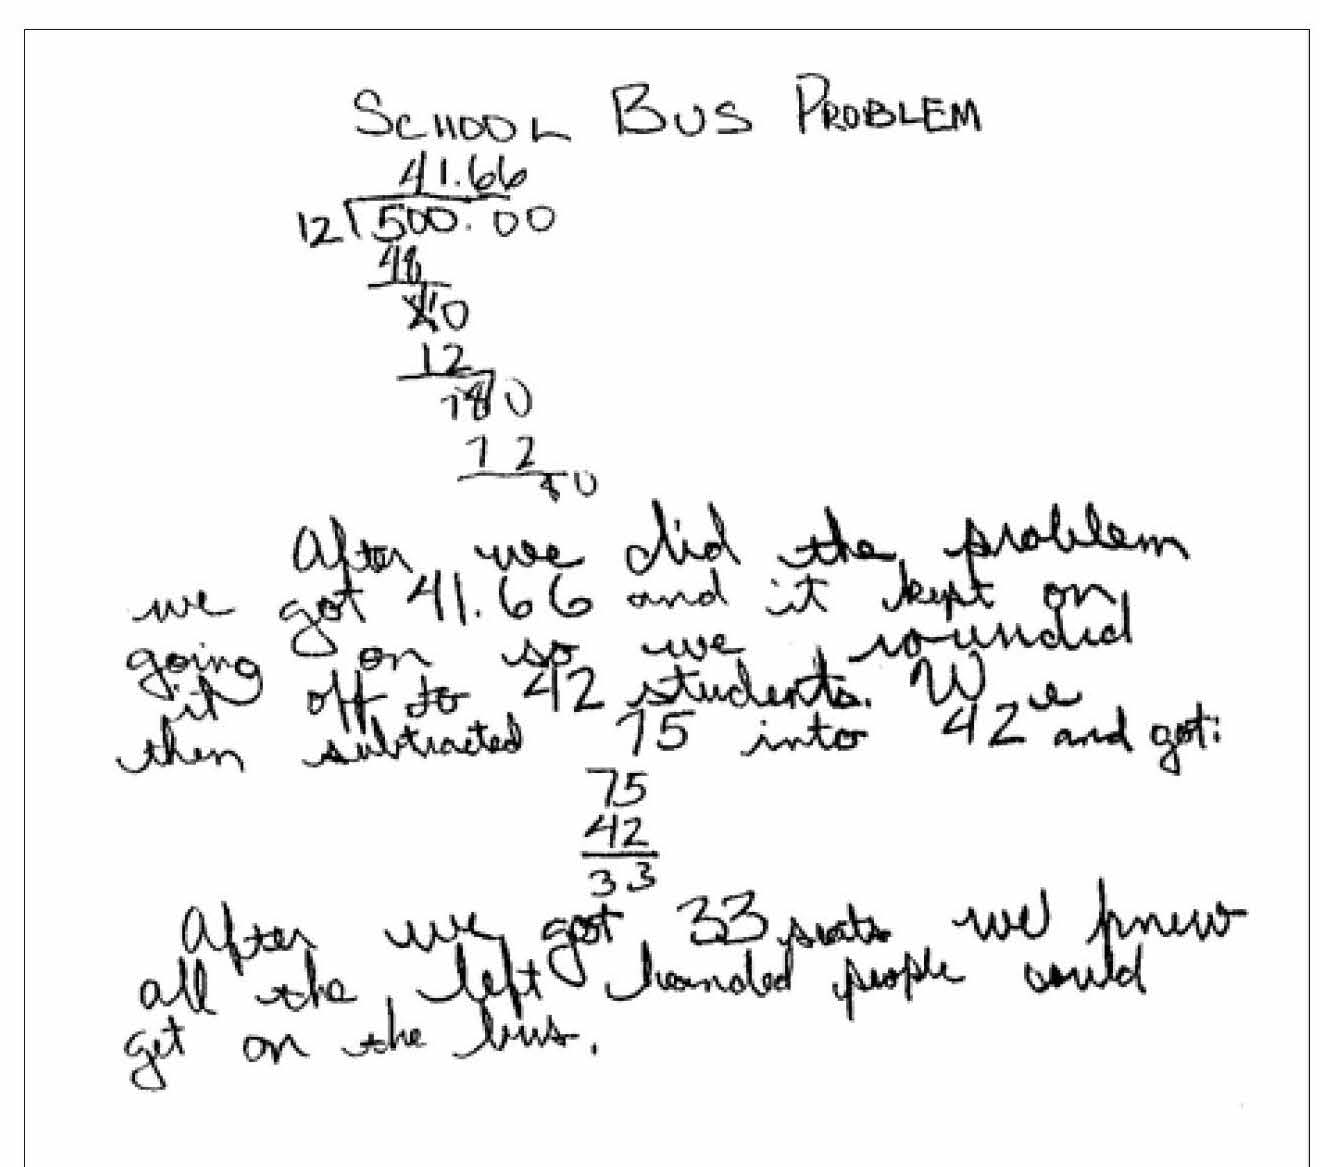 SCHOOL BUS PROBLEM
41.66
12 500.00
48
20
12
80
72
80
After we did the problem
we got 41.66 and it kept on
going on so we roundid
it off to 42 students. We
then subtracted 75 into 42 and got:
75
42
33
After we got 33 seats we knew
all the left handed people could
get on the bus.